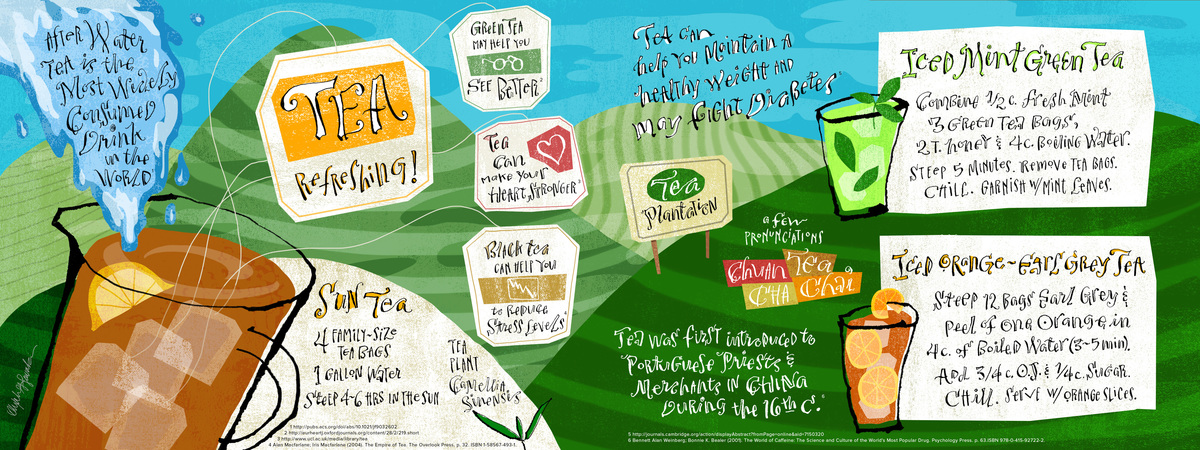 After Water
Tea is the
Most Widely
Consumed
Drink
in the
World¹
TEA
Refreshing!
Green Tea
may help you
See Better²
Tea
can
make your
Heart Stronger³
Black tea
can help you
to Reduce
Stress Levels⁴
Sun Tea
4 family-size
tea bags
1 gallon water
Steep 4-6 hrs in the sun
Tea
Plant
Camellia
Sinensis
1 http://pubs.acs.org/doi/abs/10.1021/jf9032602
2 http://eurheartj.oxfordjournals.org/content/28/2/219.short
3 http://www.ucl.ac.uk/media/library/tea
4 Alan Macfarlane; Iris Macfarlane (2004). The Empire of Tea. The Overlook Press, p. 32. ISBN 1-58567-493-1.
Tea can
help you Maintain a
healthy weight and
may fight Diabetes
Tea
Plantation
a few
pronunciations
Chuan Tea
Cha Chai
Tea was first introduced to
Portuguese Priests &
Merchants in China
during the 16th c.⁶
5 http://journals.cambridge.org/action/displayAbstract?fromPage=online&aid=7150320
6 Bennett Alan Weinberg; Bonnie K. Bealer (2001). The World of Caffeine: The Science and Culture of the World's Most Popular Drug. Psychology Press. p. 63.ISBN 978-0-415-92722-2.
Iced Mint Green Tea
Combine 1/2 c. fresh Mint
3 Green Tea Bags,
2 T. honey & 4 c. Boiling Water.
Steep 5 Minutes. Remove Tea Bags.
Chill. Garnish w/Mint Leaves.
Iced Orange-Earl Grey Tea
Steep 12 Bags Earl Grey &
peel of one Orange in
4 c. of Boiled Water (3-5 min).
Add 3/4 c. O.J. & 1/4 c. Sugar.
Chill. Serve w/orange slices.